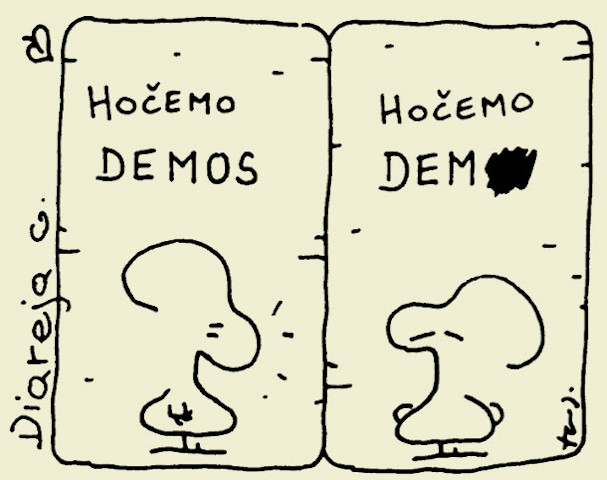 Diareja c.
HOČEMO
DEMOS
HOČEMO
DEM